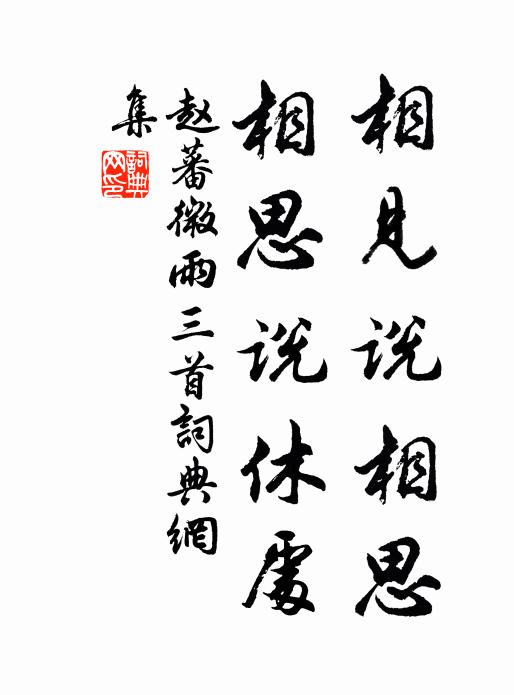 相见说相思
相思说休處
赵蕃微雨三首詞典網
集
詞典
网印